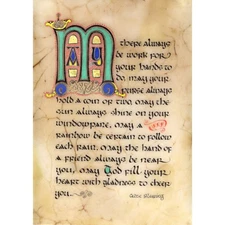 May
there always
be work for
your hands to
do. may your
purse always
hold a coin or two. may the
sun always shine on your
windowpane. may a
rainbow be certain to follow
each rain. may the hand of
a friend always be near
you. may God fill your
heart with gladness to cheer
you.